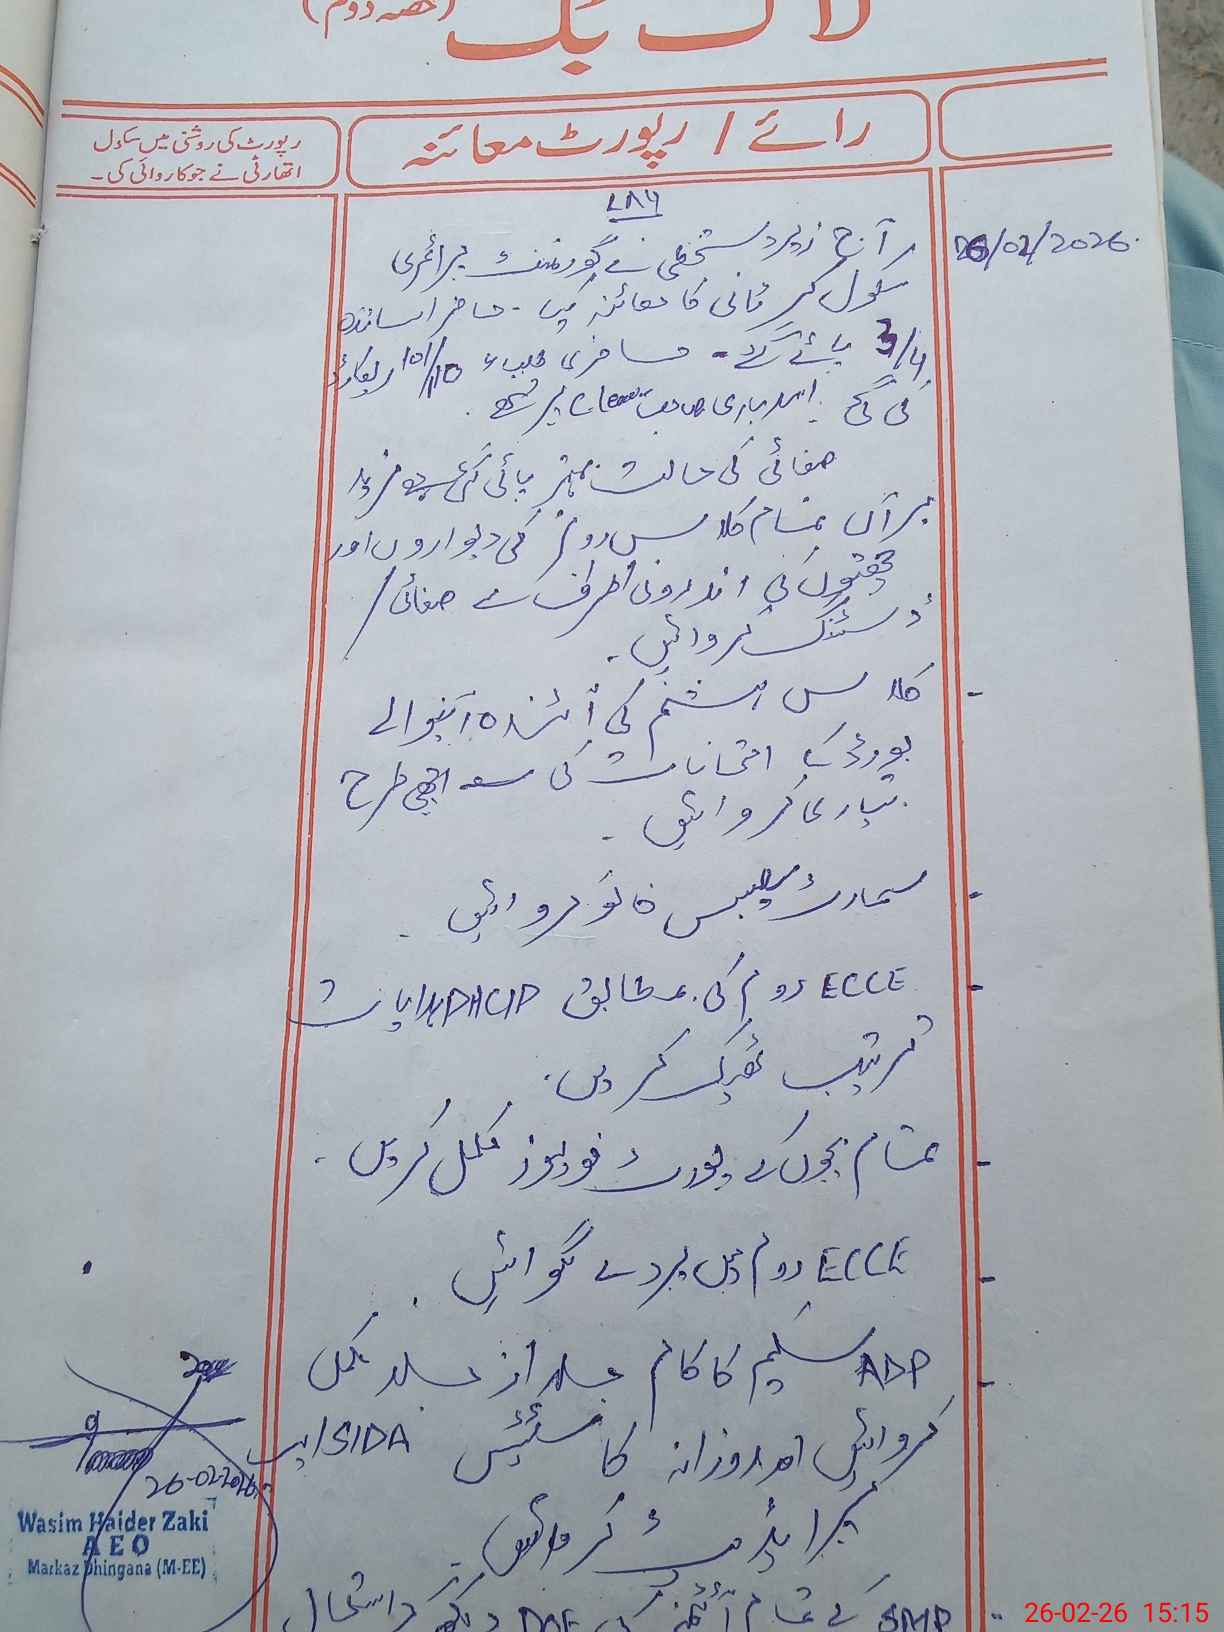 لاگ بک (حصہ دوم)
رائے / رپورٹ معائنہ
رپورٹ کی روشنی میں سکول
اتھارٹی نے جو کاروائی کی۔
۷۸۶
26/02/2026.
آج زیر دستخطی نے گورنمنٹ پرائمری
سکول کا معائنہ کیا۔ حاضر اساتذہ
3/4 پائے گئے۔ حاضری طلباء 101/110 ریکارڈ
کی گئی۔ صاحب leave پر تھے۔
صفائی کی حالت بہتر پائی گئی مزید
برآں تمام کلاس رومز کی دیواروں اور
چھتوں کی اندرونی اطراف سے صفائی/
ڈسٹنگ کروائیں۔
- کلاس ہشتم کی آئندہ آنیوالے
بورڈ کے امتحانات کی اچھی طرح
تیاری کروائیں۔
- سمارٹ سلیبس فالو کروائیں۔
- ECCE روم کی مطابق PHCIP ہدایات
ترتیب ٹھیک کریں۔
- تمام بچوں کے پورٹ فولیوز مکمل کریں۔
- ECCE روم میں پردے لگوائیں۔
- ADP سکیم کا کام جلد از جلد مکمل
کروائیں اور روزانہ کا سٹیٹس SIDA ایپ
پر اپڈیٹ کروائیں۔
- SMP کے تمام آئٹمز کی
26-02-2026
Wasim Haider Zaki
A E O
Markaz Dhingana (M-EE)
26-02-26 15:15